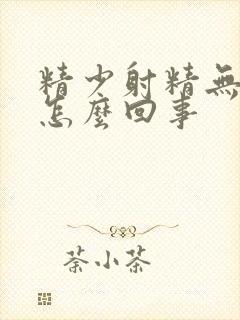 精少射精無
怎麼回事
荼小茶